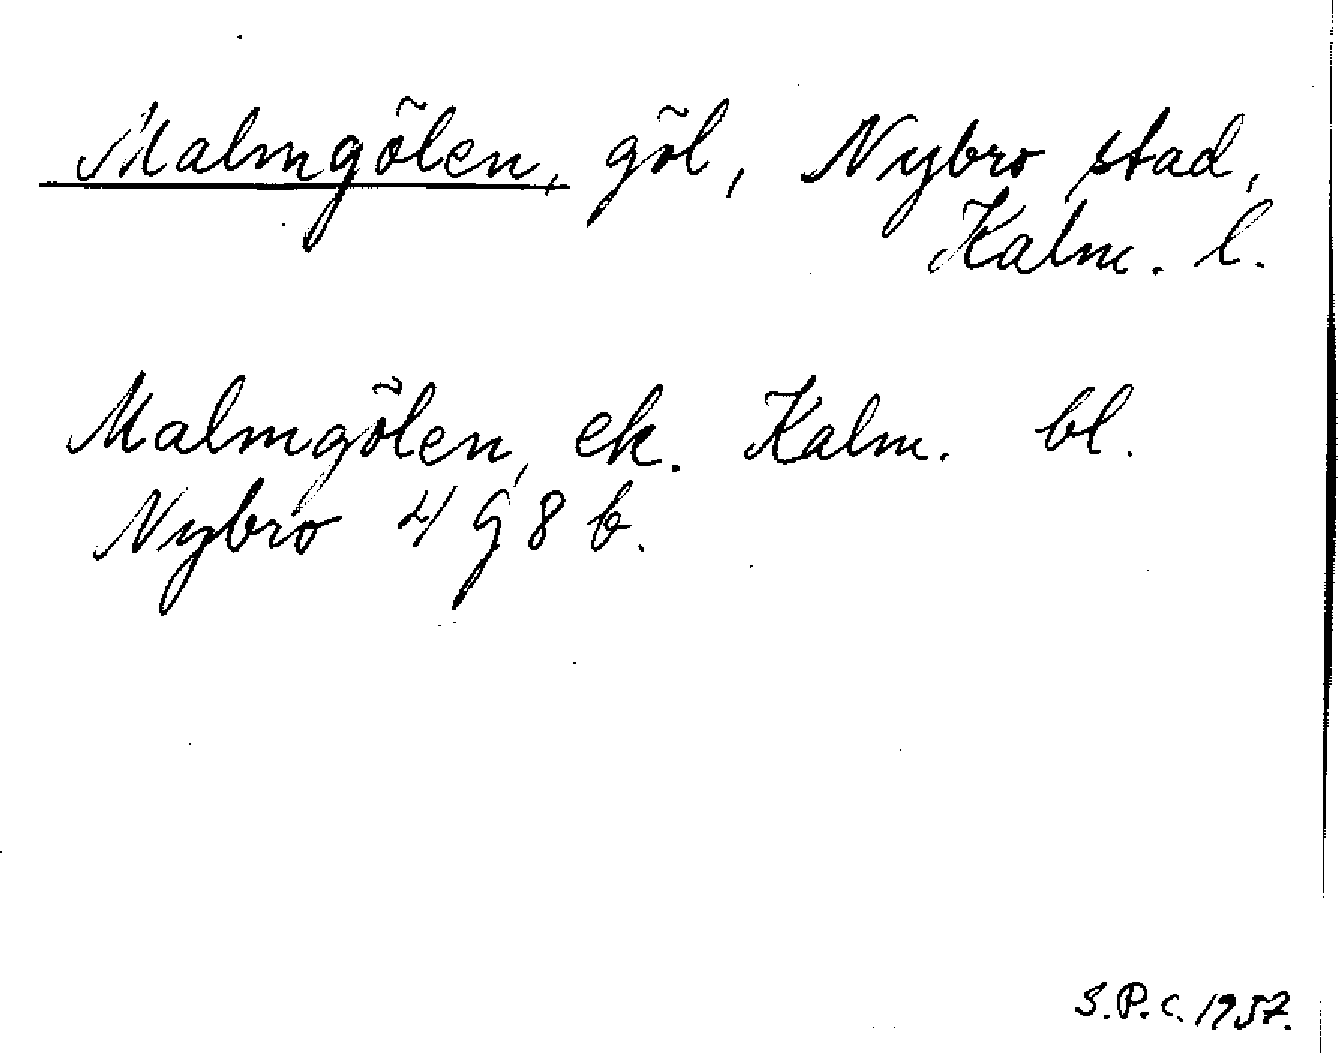 Malmgölen, göl, Nybro stad,
Kalm. l.
Malmgölen, ek. Kalm. bl.
Nybro 4 G 8 b.
S.P.C. 1957.